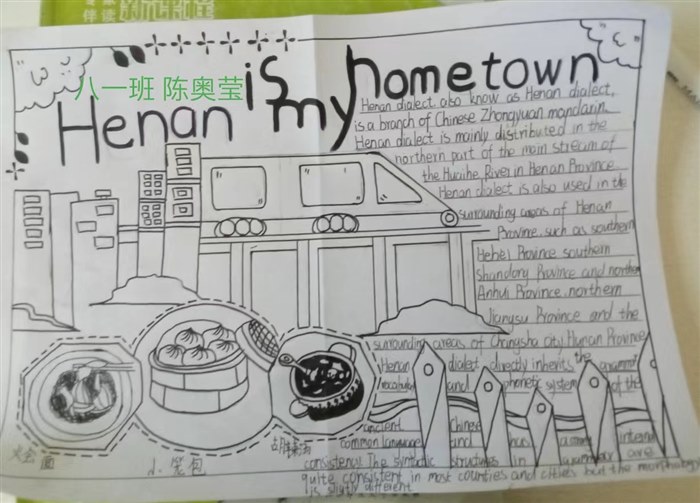 八一班 陈奥莹
Henan is my hometown
Henan dialect also know as Henan dialect,
is a branch of Chinese Zhongyuan mandarin.
Henan dialect is mainly distributed in the
northern part of the main stream of
the Huaihe River in Henan Province.
Henan dialect is also used in the
surrounding areas of Henan
Province, such as southern
Hebei Province southern
Shandong Province and northern
Anhui Province, northern
Jiangsu Province and the
surrounding areas of Changsha city Hunan Province
Henan dialect directly inherits the grammar
and phonetic system of the
ancient Chinese
common language and has a strong internal
consistency. The syntactic structures in grammar are
quite consistent in most counties and cities but the morphology
is slightly different
烩面
小笼包
胡辣汤